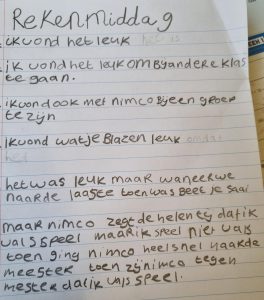 Rekenmiddag
ikvond het leuk
ik vond het leuk om by andere klas
te gaan.
ik vond ook met nimco bij een groep
te zijn
Ikvond watje Blazen leuk omdat
het
het was leuk maar waneerwe
naarde laaste toen was beetje saai
maar nimco zegt de hele ty dat ik
vals speel maar ik speel niet vals
toen ging nimco heel snel naarde
meester toen zij nimco tegen
mester dat ik vals speel.